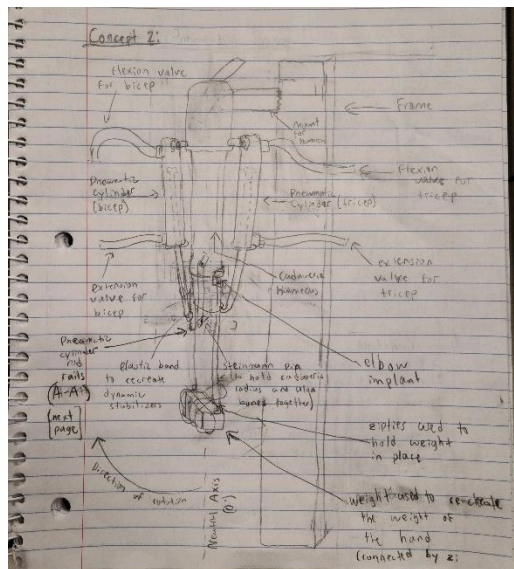 Concept 2:
flexion valve
for bicep
Frame
mount
for
humerus
Pneumatic
cylinder
(bicep)
Pneumatic
cylinder (tricep)
flexion
valve for
tricep
extension
valve for
bicep
cadaveric
humerous
extension
valve for
tricep
Pneumatic
cylinder
rod
rails
(A-A)
[next
page]
plastic band
to recreate
dynamic
stabilizers
Steinmann pin
(to hold cadaveric
radius and ulna
bones together)
elbow
implant
zipties used to
hold weight
in place
Direction of rotation
Neutral Axis
(0°)
weight used to re-create
the weight of
the hand
(connected by zi